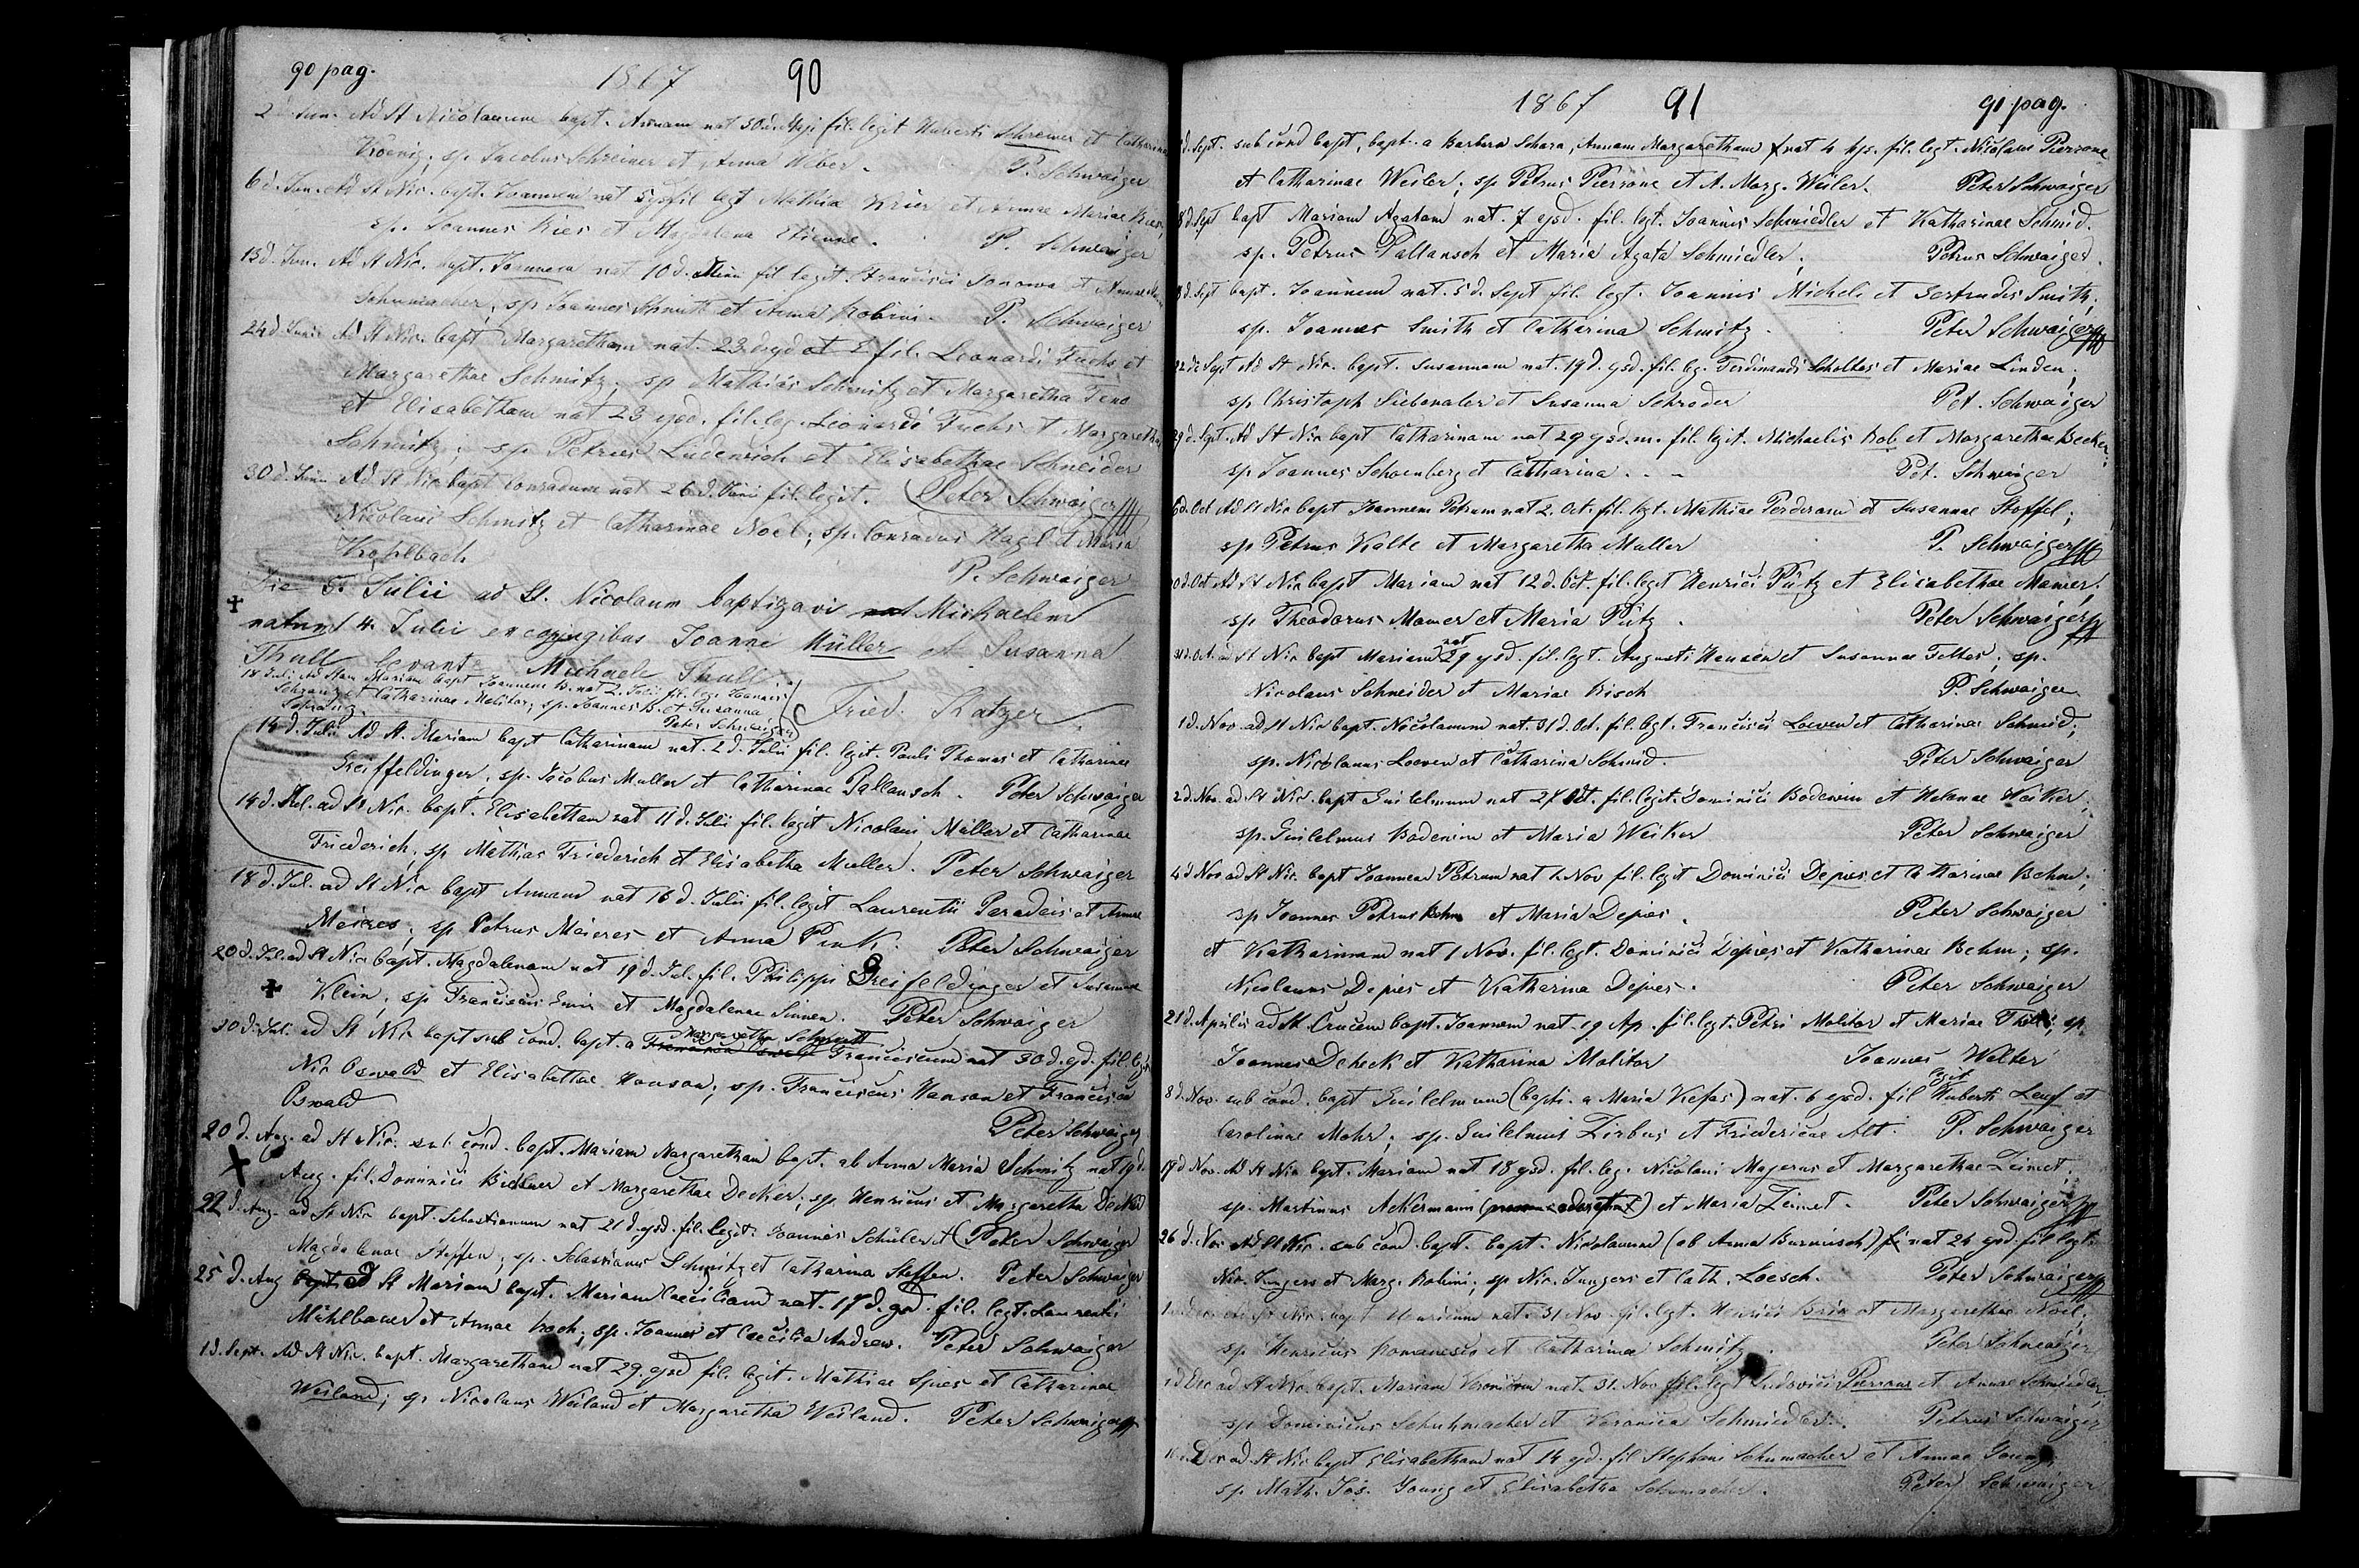 90 pag. 1867 90
2 d. Jun. Ad St Nicolaum bapt. Annam nat 30 d. Maji fil. legit Huberti Schreiner et Catharina
Koenig; sp. Jacobus Schreiner et Anna Weber. P. Schwaiger
6 d. Jun. Ad St Nic. bapt. Joannem nat 5 fil legt Mathiae Krier et Annae Mariae Kies,
sp. Joannes Kies et Magdalena Etienne. P. Schwaiger
13 d. Jun. Ad St Nic. bapt. Joannem nat 10 d. Junii fil legit. Francisci et Annae
Schumacher; sp Joannes Schmitt et Anna Robini. P. Schwaiger
24 d. Junii Ad St Nic. bapt Margaretham nat. 23 fil. Leonardi Fuchs et
Margarethae Schmitz, sp Mathias Schmitz et Margaretha
et Elisabetham nat 23 ejsd. fil. leg. Leonardi Fuchs et Margaretha
Schmitz; sp Petrus et Elisabethae Schneider
30 d. Junii Ad St Nic bapt Conradum nat 26 d. Junii fil. legit. Peter Schwaiger
Nicolai Schmitz et Catharinae Noel; sp. Conradus Hagl et Maria
Kohlbach P. Schwaiger
Die 5. Julii ad St. Nicolaum baptizavi Michaelem
natum 4. Julii ex conjugibus Joanne Müller et Susanna
Thull levante Michaele Thull
Fried. Katzer
14 d. Julii Ad St. Mariam bapt Joannem B. nat 2. Julii fil. leg. Joannis
Schranz et Catharinae Molitor; sp. Joannes B. et Susanna
Schranz. Peter Schwaiger
14 d. Julii Ad St. Mariam bapt Catharinam nat. 2 d. Julii fil. legit. Pauli Thomas et Catharinae
Greiffeldinger, sp. Jacobus Muller et Catharinae Pallansch. Peter Schwaiger
14 d. Jul. ad St Nic. bapt. Elisabetham nat 11 d. Julii fil. legit Nicolai Müller et Catharinae
Friederich, sp Mathias Friederich et Elisabetha Muller. Peter Schwaiger
18 d. Jul. ad St Nic bapt Annam nat 16 d. Julii fil. legit Laurentii Paradeis et Annae
Meieres; sp Petrus Meieres et Anna Pink. Peter Schwaiger
20 d. Jul. ad St Nic bapt. Magdalenam nat 19 d. Jul. fil. Philippi Greifeldinger et Susannae
Klein, sp Franciscus et Magdalenae Sinnen. Peter Schwaiger
Margaretha Schmitt
30 d. Jul. ad St Nic bapt sub cond. bapt. a Franciscum nat 30 d. ejd. fil. legit
Nic Oswald et Elisabethae Hanson; sp. Franciscus Hanson et Francisca
Oswald Peter Schwaiger
20 d. Aug. ad St Nic. sub cond. bapt. Mariam Margaretham bapt. ab Anna Maria Schmitz nat 19 d.
Aug. fil. Dominici et Margarethae Decker; sp. Henricus et Margaretha Decker
22 d. Aug. ad St Nic bapt. Sebastianum nat 21 d. ejsd. fil. legit. Joannis Schuler et Peter Schwaiger
Magdalenae Steffen; sp. Sebastianus Schmitz et Catharina Steffen. Peter Schwaiger
25 d. Aug bapt ad St Mariam bapt. Mariam Caeciliam nat. 17 d. fil. legt. Laurentii
Mühlbauer et Annae Koch; sp. Joannes et Caecilia Andrew. Peter Schwaiger
1 d. Sept. Ad St Nic. bapt. Margaretham nat 29. ejsd fil. legit. Mathiae Spies et Catharinae
Weiland; sp Nicolaus Weiland et Margaretha Weiland. Peter Schwaiger
1867 91 91 pag.
d. Sept. sub cond bapt, bapt. a Barbara Schara, Annam Margaretham nat 4 fil. legt. Nicolaus Pierrone
et Catharinae Weiler; sp Petrus Pierrone et A. Marg. Weiler. Peter Schwaiger
8 d. Sept bapt Mariam Agatam nat. 7 ejsd. fil. legt. Joannis Schmiedler et Katharinae Schmid.
sp. Petrus Pallansch et Maria Agata Schmiedler. Petrus Schwaiger.
8 d. Sept bapt. Joannem nat. 5 d. Sept fil. legt. Joannis Michels et Gertrudis Smith,
sp. Joannes Smith et Catharina Schmitz. Peter Schwaiger
22 d. Sept Ad St Nic. bapt. Susannam nat. 19 d. ejsd. fil. lg. Ferdinandi Scholtes et Mariae Linden;
sp Christoph Siebenaler et Susanna Schroder Pet. Schwaiger
29 d. Sept. Ad St Nic bapt Catharinam nat 29 ejsd. m. fil. legit. Michaelis Rob et Margarethae Becker;
sp Joannes Schoenberg et Catharina . . – Pet. Schwaiger
6 d. Oct Ad St Nic bapt Joannem Petrum nat 2. Oct. fil. legt. Mathiae et Susannae Stoffel;
sp Petrus Kalte et Margaretha Muller P. Schwaiger
d. Oct Ad St Nic bapt Mariam nat 12 d. Oct. fil. legit Henrici Pütz et Elisabethae Mamer,
sp Theodorus Mamer et Maria Pütz. Peter Schwaiger
31 d. Oct. ad St Nic bapt Mariam nat 29 ejsd. fil. legt. Augusti Hansen et Susannae Feltes; sp.
Nicolaus Schneider et Mariae Kisch P. Schwaiger
1 d. Nov ad St Nic bapt. Nicolaum nat. 31 d. Oct. fil. legt. Francisci Loeven et Catharinae Schmid;
sp. Nicolaus Loeven et Catharina Schmid. Peter Schwaiger
2 d. Nov. ad St Nic. bapt Guilelmum nat 27 Oct. fil. legit. Dominici Bodewin et Helenae Weiker;
sp. Guilelmus Bodewin et Maria Weiker Peter Schwaiger
4 d Nov ad St Nic. bapt Joannem Petrum nat 1. Nov fil. legit Dominici Depies et Catharinae Behm;
sp Joannes Petrus Behm et Maria Depies. Peter Schwaiger
et Katharinam nat 1 Nov. fil. legt. Dominici Depies et Katharinae Behm; sp.
Nicolaus Depies et Katharina Depies. Peter Schwaiger
21 d. Aprilis ad St. Crucem bapt. Joannem nat. 19 Ap. fil. legt. Petri Molitor et Mariae sp.
Joannes Deheck et Katharina Molitor Joannes Welter
8 d. Nov. sub cond. bapt Guilelmum (bapt. a Maria Kefas) nat. 6 ejsd. fil legit Huberti Leuf et
Carolinae Mohr; sp. Guilelmus Zirbus et Fridericae Alt. P. Schwaiger
d Nov. Ad St Nic bapt. Mariam nat 18 ejsd. fil. leg. Nicolai Majerus et Margarethae Zeimet,
sp. Martinus Ackermann et Maria Zeimet. Peter Schwaiger
26 d. Nov Ad St Nic. sub cond. bapt. bapt. Nicolaum (ab Anna) nat 24 ejsd. fil legt.
Nic. Jungers et Marg. Robini; sp Nic. Jungers et Cath. Loesch. Peter Schwaiger
1 d. Dec ad St Nic. bapt Henricum nat. 31 Nov. fil. legt. Henrici Brix et Margarethae Noel;
sp Henricus et Catharina Schmitz. Peter Schwaiger
d Dec ad St Nic. bapt. Mariam nat. 31. Nov fil. legt Ludovici Pierrone et Annae Schmiedler;
sp Dominicus Schuhmacher et Veronica Schmiedler. Petrus Schwaiger
Dec ad. St Nic bapt Elisabetham nat 14 ejd. fil Stephani Schumacher et Annae
sp. Math. Jos. Young et Elisabetha Schumacher. Peter Schwaiger